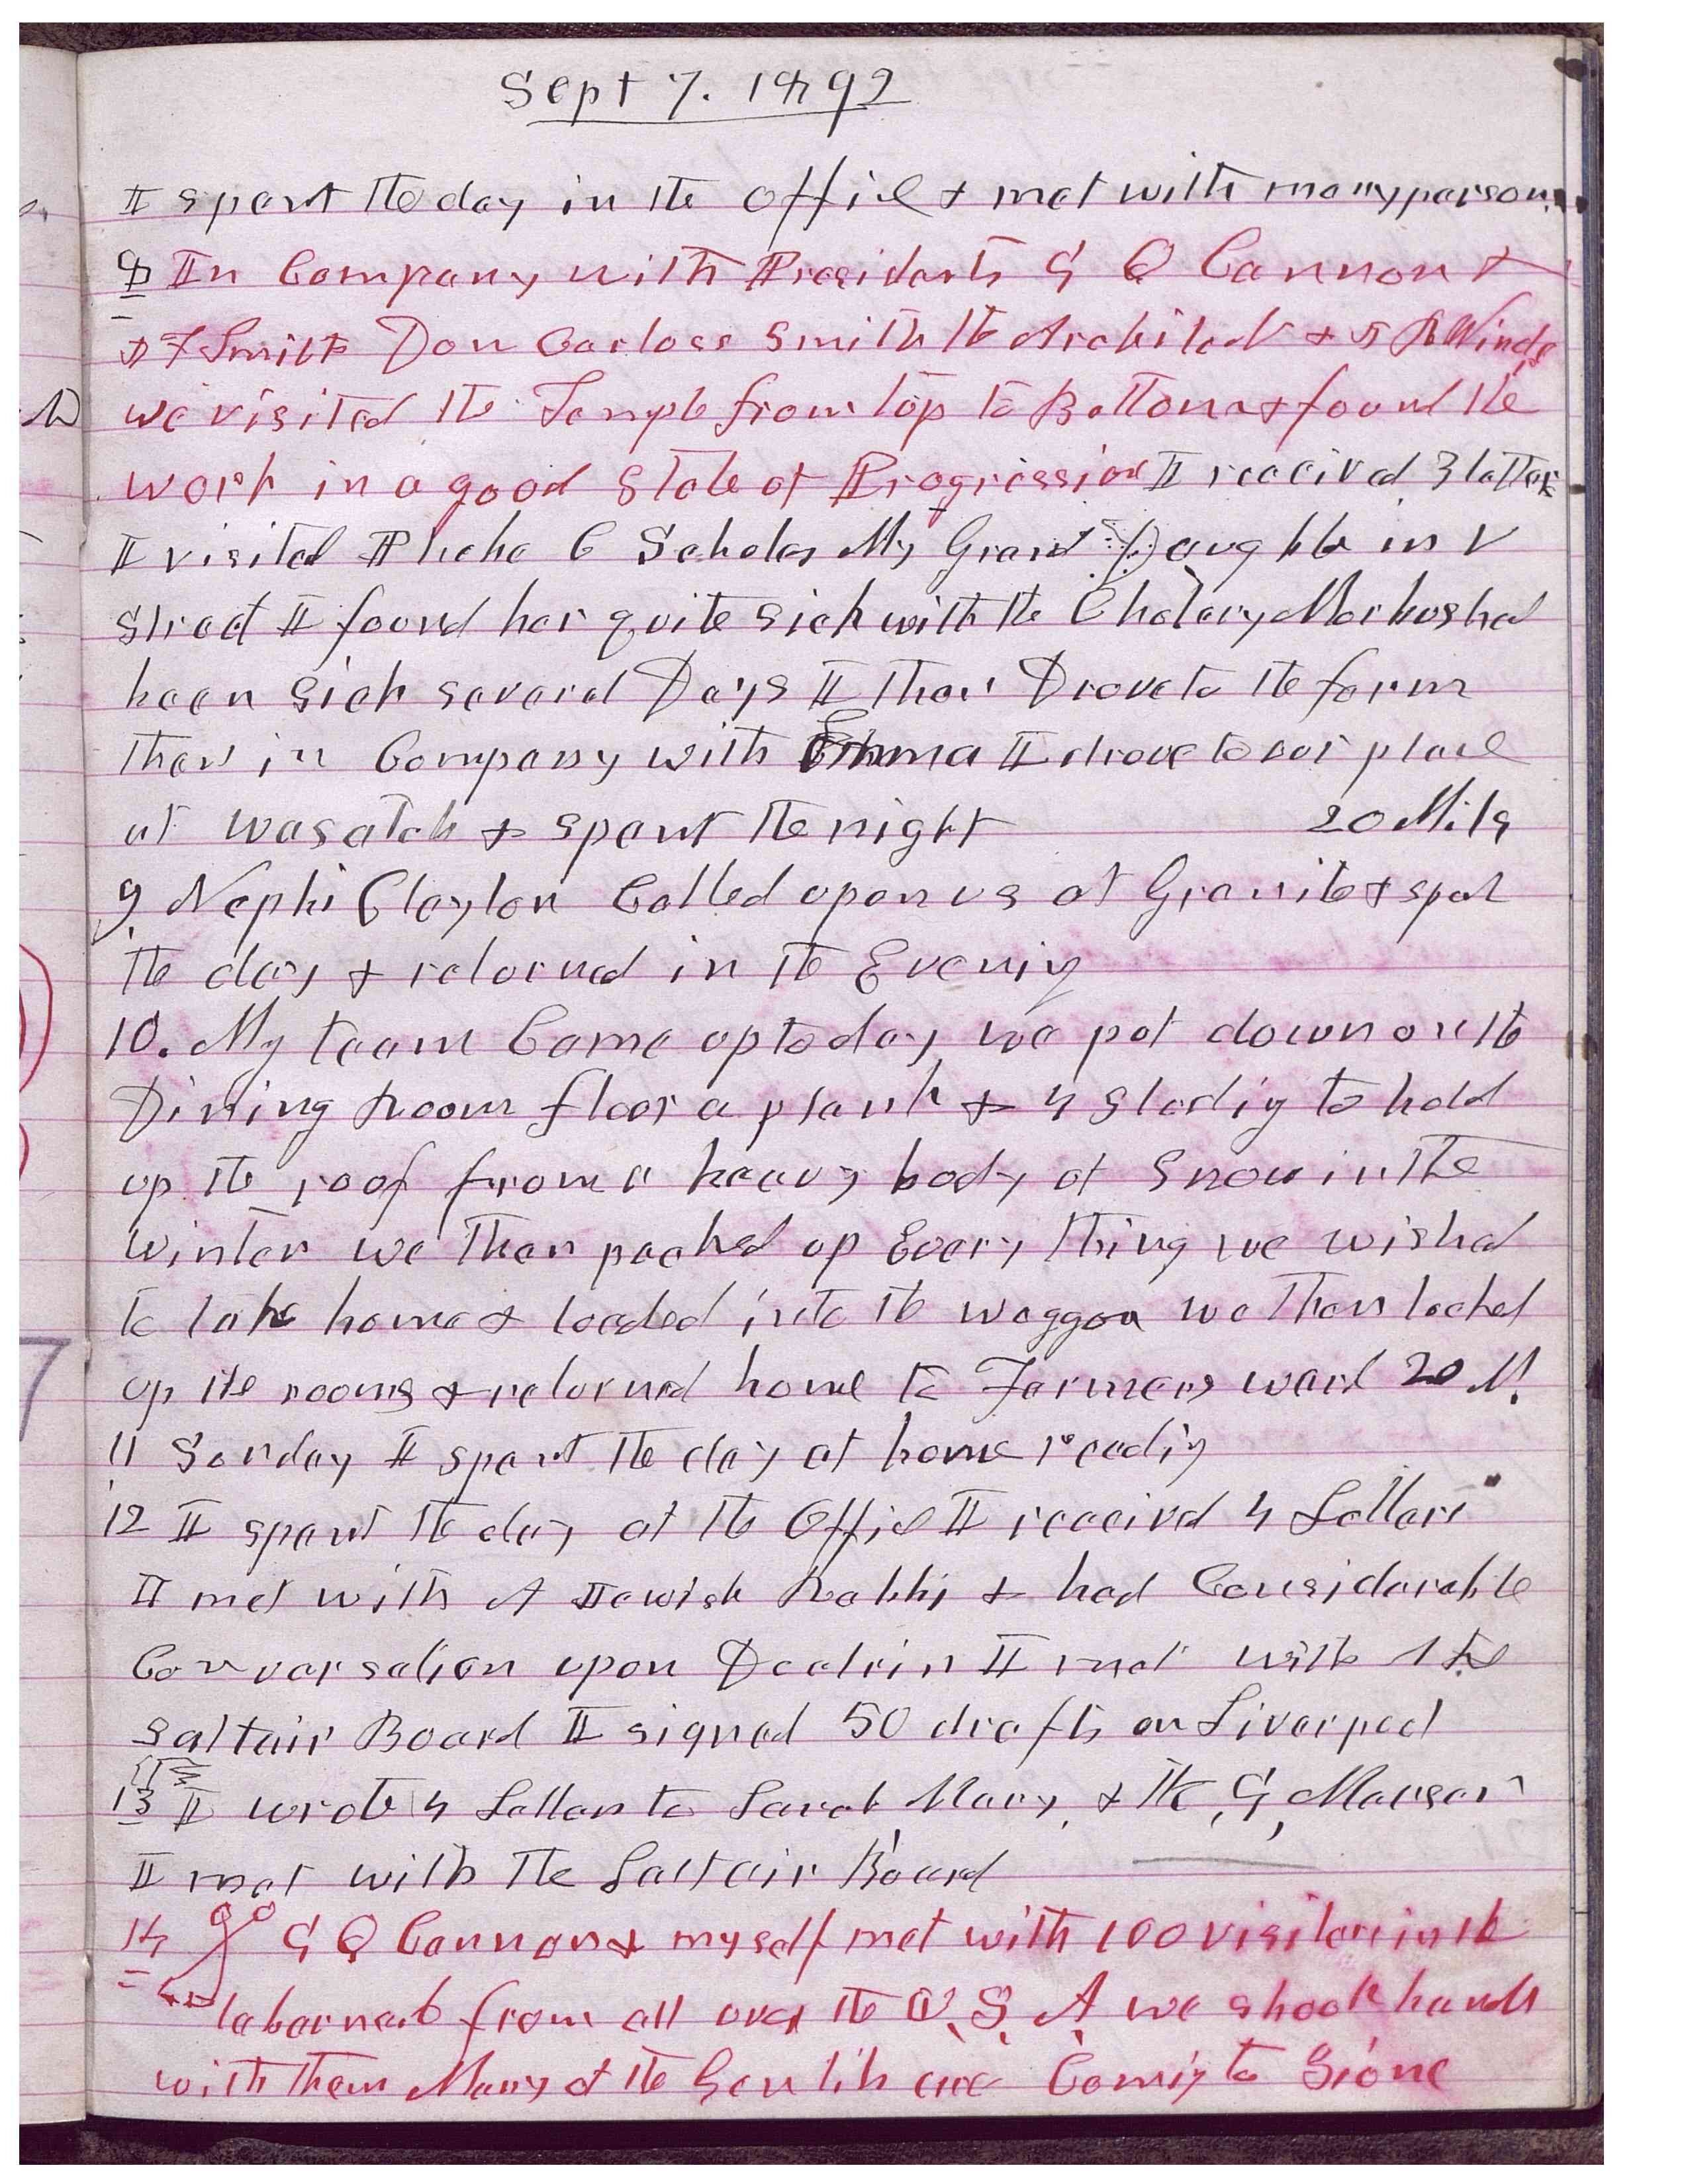 Sept 7. 1892
I spent the day in the office & met with many persons
8 In Company with Presidents G Q Cannon &
J F Smith Don Carloss Smith the Architect & J R Winder
we visited the Temple from top to Bottom & found the
work in a good State of Progression I received 3 letters
I visited Phebe C Scholes My Grand Daughter in V
Street I found her quite sick with the Cholery Morbus had
been sick several Days I then Drove to the farm
then in Company with Emma I drove to our place
at Wasatch & spent the night 20 Mils
9 Nephi Clayton Called upon us at Granite & spent
the day & returned in the Evenig
10. My team Came up to day we put down on the
Dining Room floor a plank & 4 studig to hold
up the roof from a heavy body of Snow in the
winter we then packed up Every thing we wished
to take home & loaded into the waggon we then locked
up the rooms & returned home to Farmers ward 20 M.
11 Sunday I spent the day at home readig
12 I spent the day at the Office I received 4 Letters
I met with A Jewish Rabbi & had Considerable
Convorsation upon Doctrin I met with the
Saltair Board I signed 50 drafts on Liverpool
13 I wrote 4 Letters to Sarah, Mary, &
I met with the Saltair Board
14 G Q Cannon & myself met with 100 visitors in the
tabernacle from all over the U. S. A. we shook hands
with them Many of the Gentiles are Comig to Sione